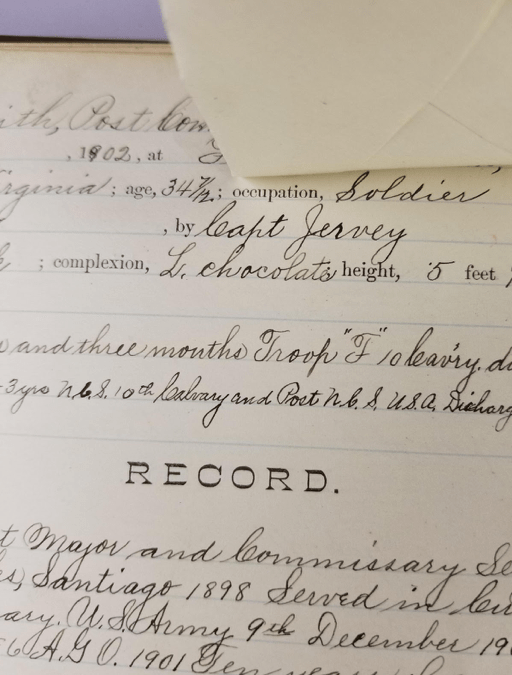 ith, Post Com
, 1902, at
irginia ; age, 34 7/12 ; occupation, Soldier
, by Capt Jervey
; complexion, L. chocolate height, 5 feet
and three months Troop "F" 10 Cav'ry. di
3 yrs N.C.S. 10th Calvary and Post N.C.S. U.S.A. Dicharg
RECORD.
t Major and Commissary Se
es, Santiago 1898 Served in Cu
ary. U.S. Army 9th December 190
6 A.G.O. 1901 Ten years